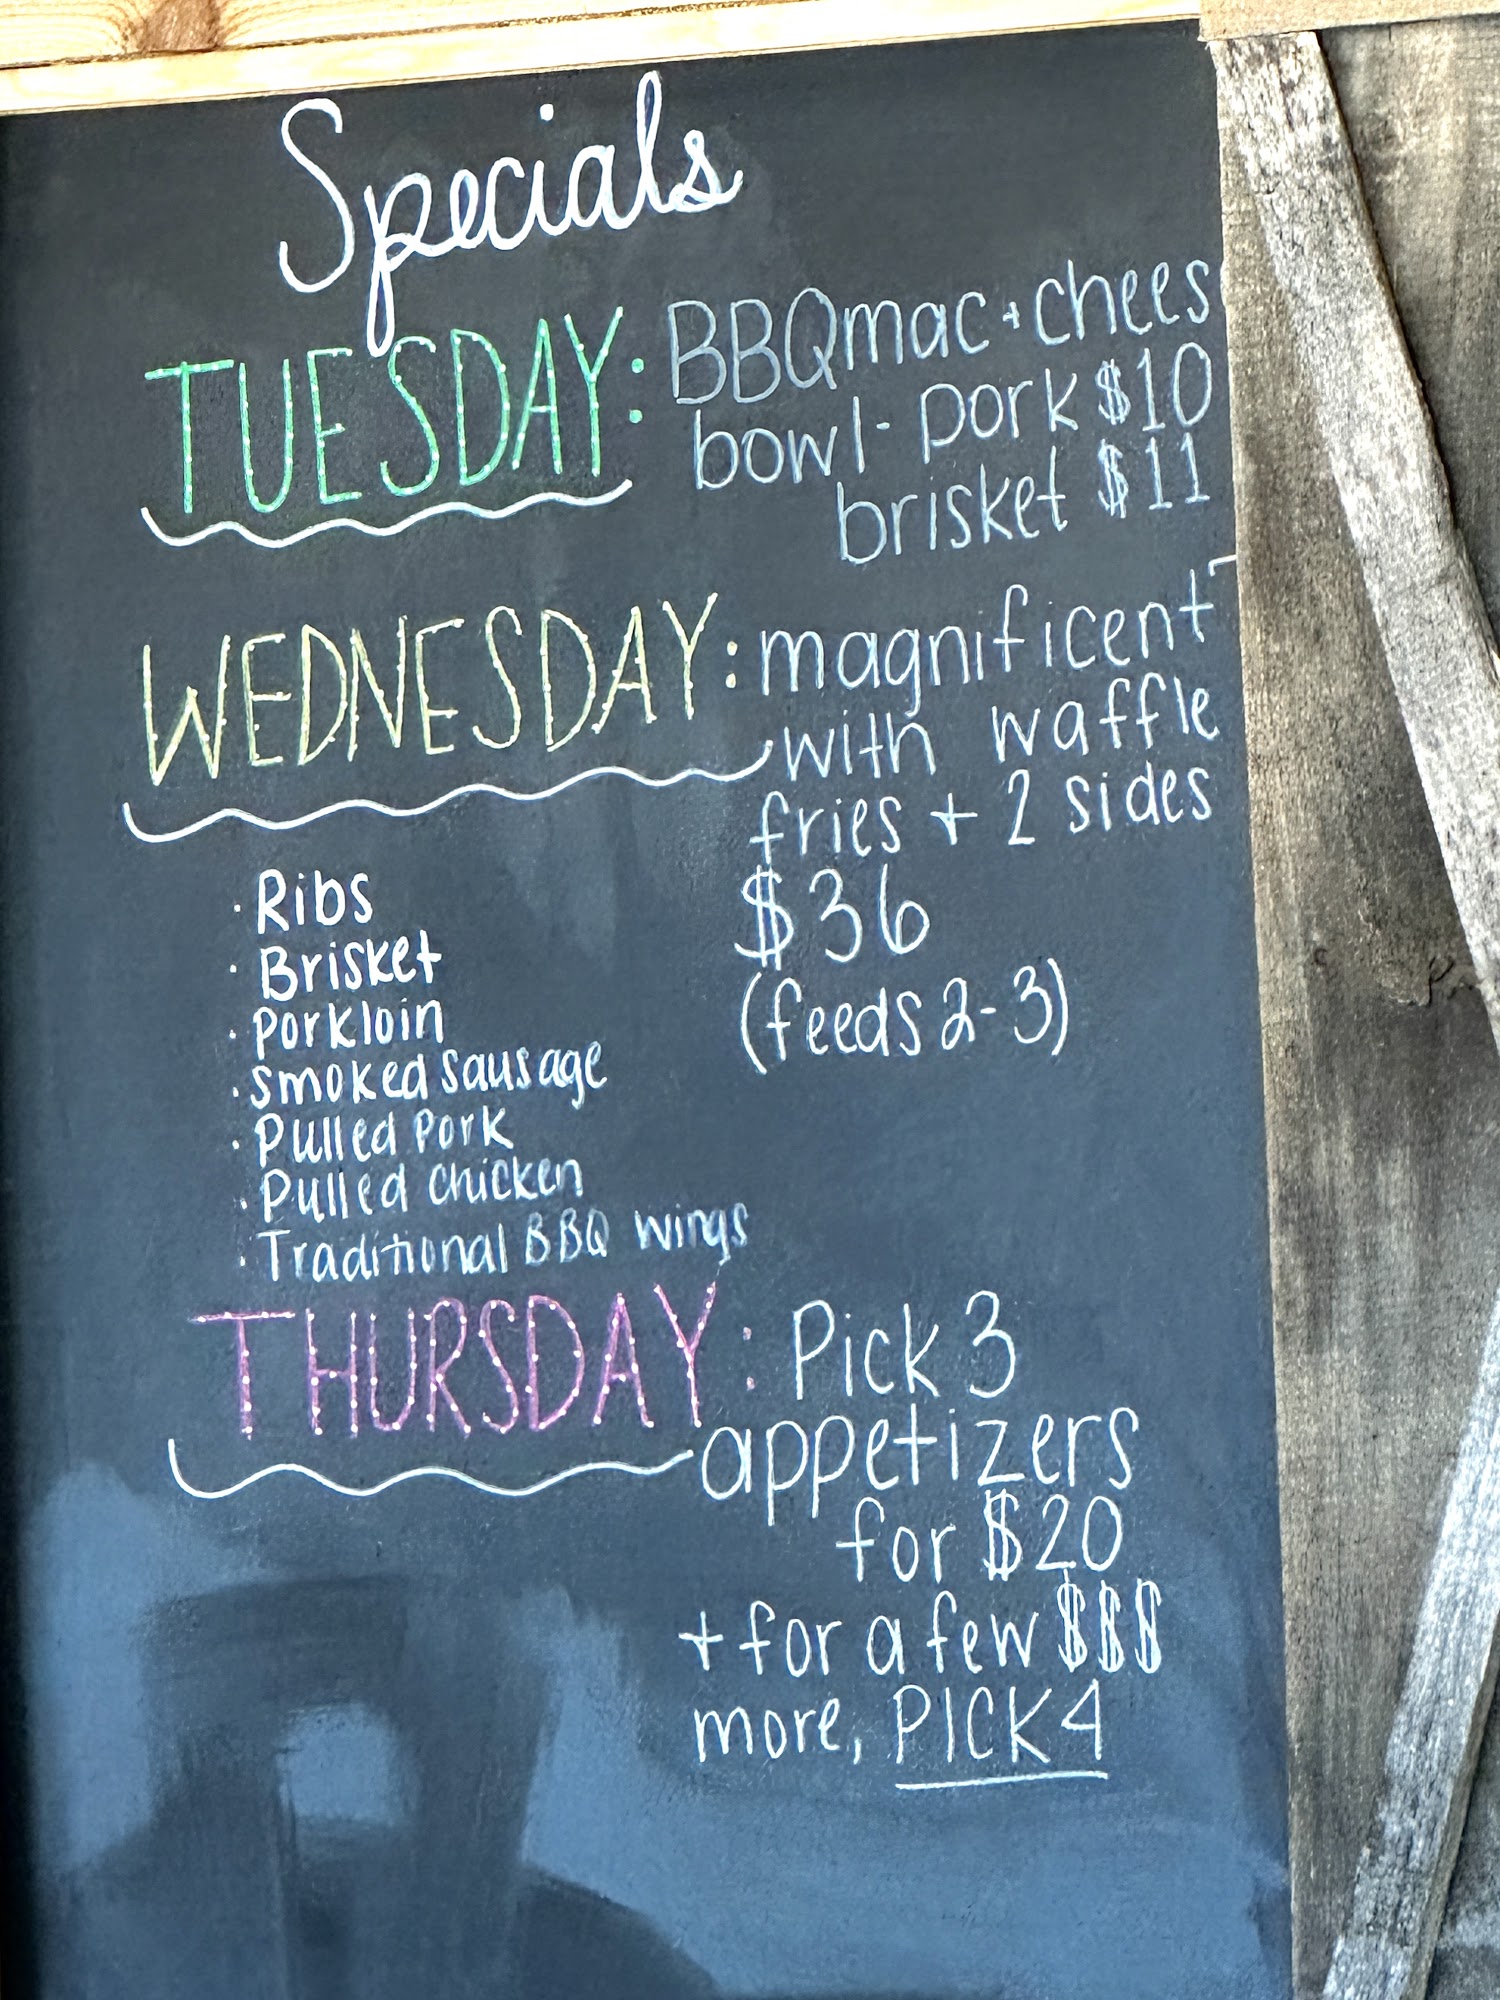 Specials
TUESDAY: BBQ mac + chees
bowl - pork $10
brisket $11
WEDNESDAY: magnificent 7
with waffle
fries + 2 sides
$36
(feeds 2-3)
· Ribs
· Brisket
· Porkloin
· Smoked Sausage
· Pulled Pork
· Pulled Chicken
· Traditional BBQ Wings
THURSDAY: Pick 3
appetizers
for $20
+ for a few $$$
more, PICK 4